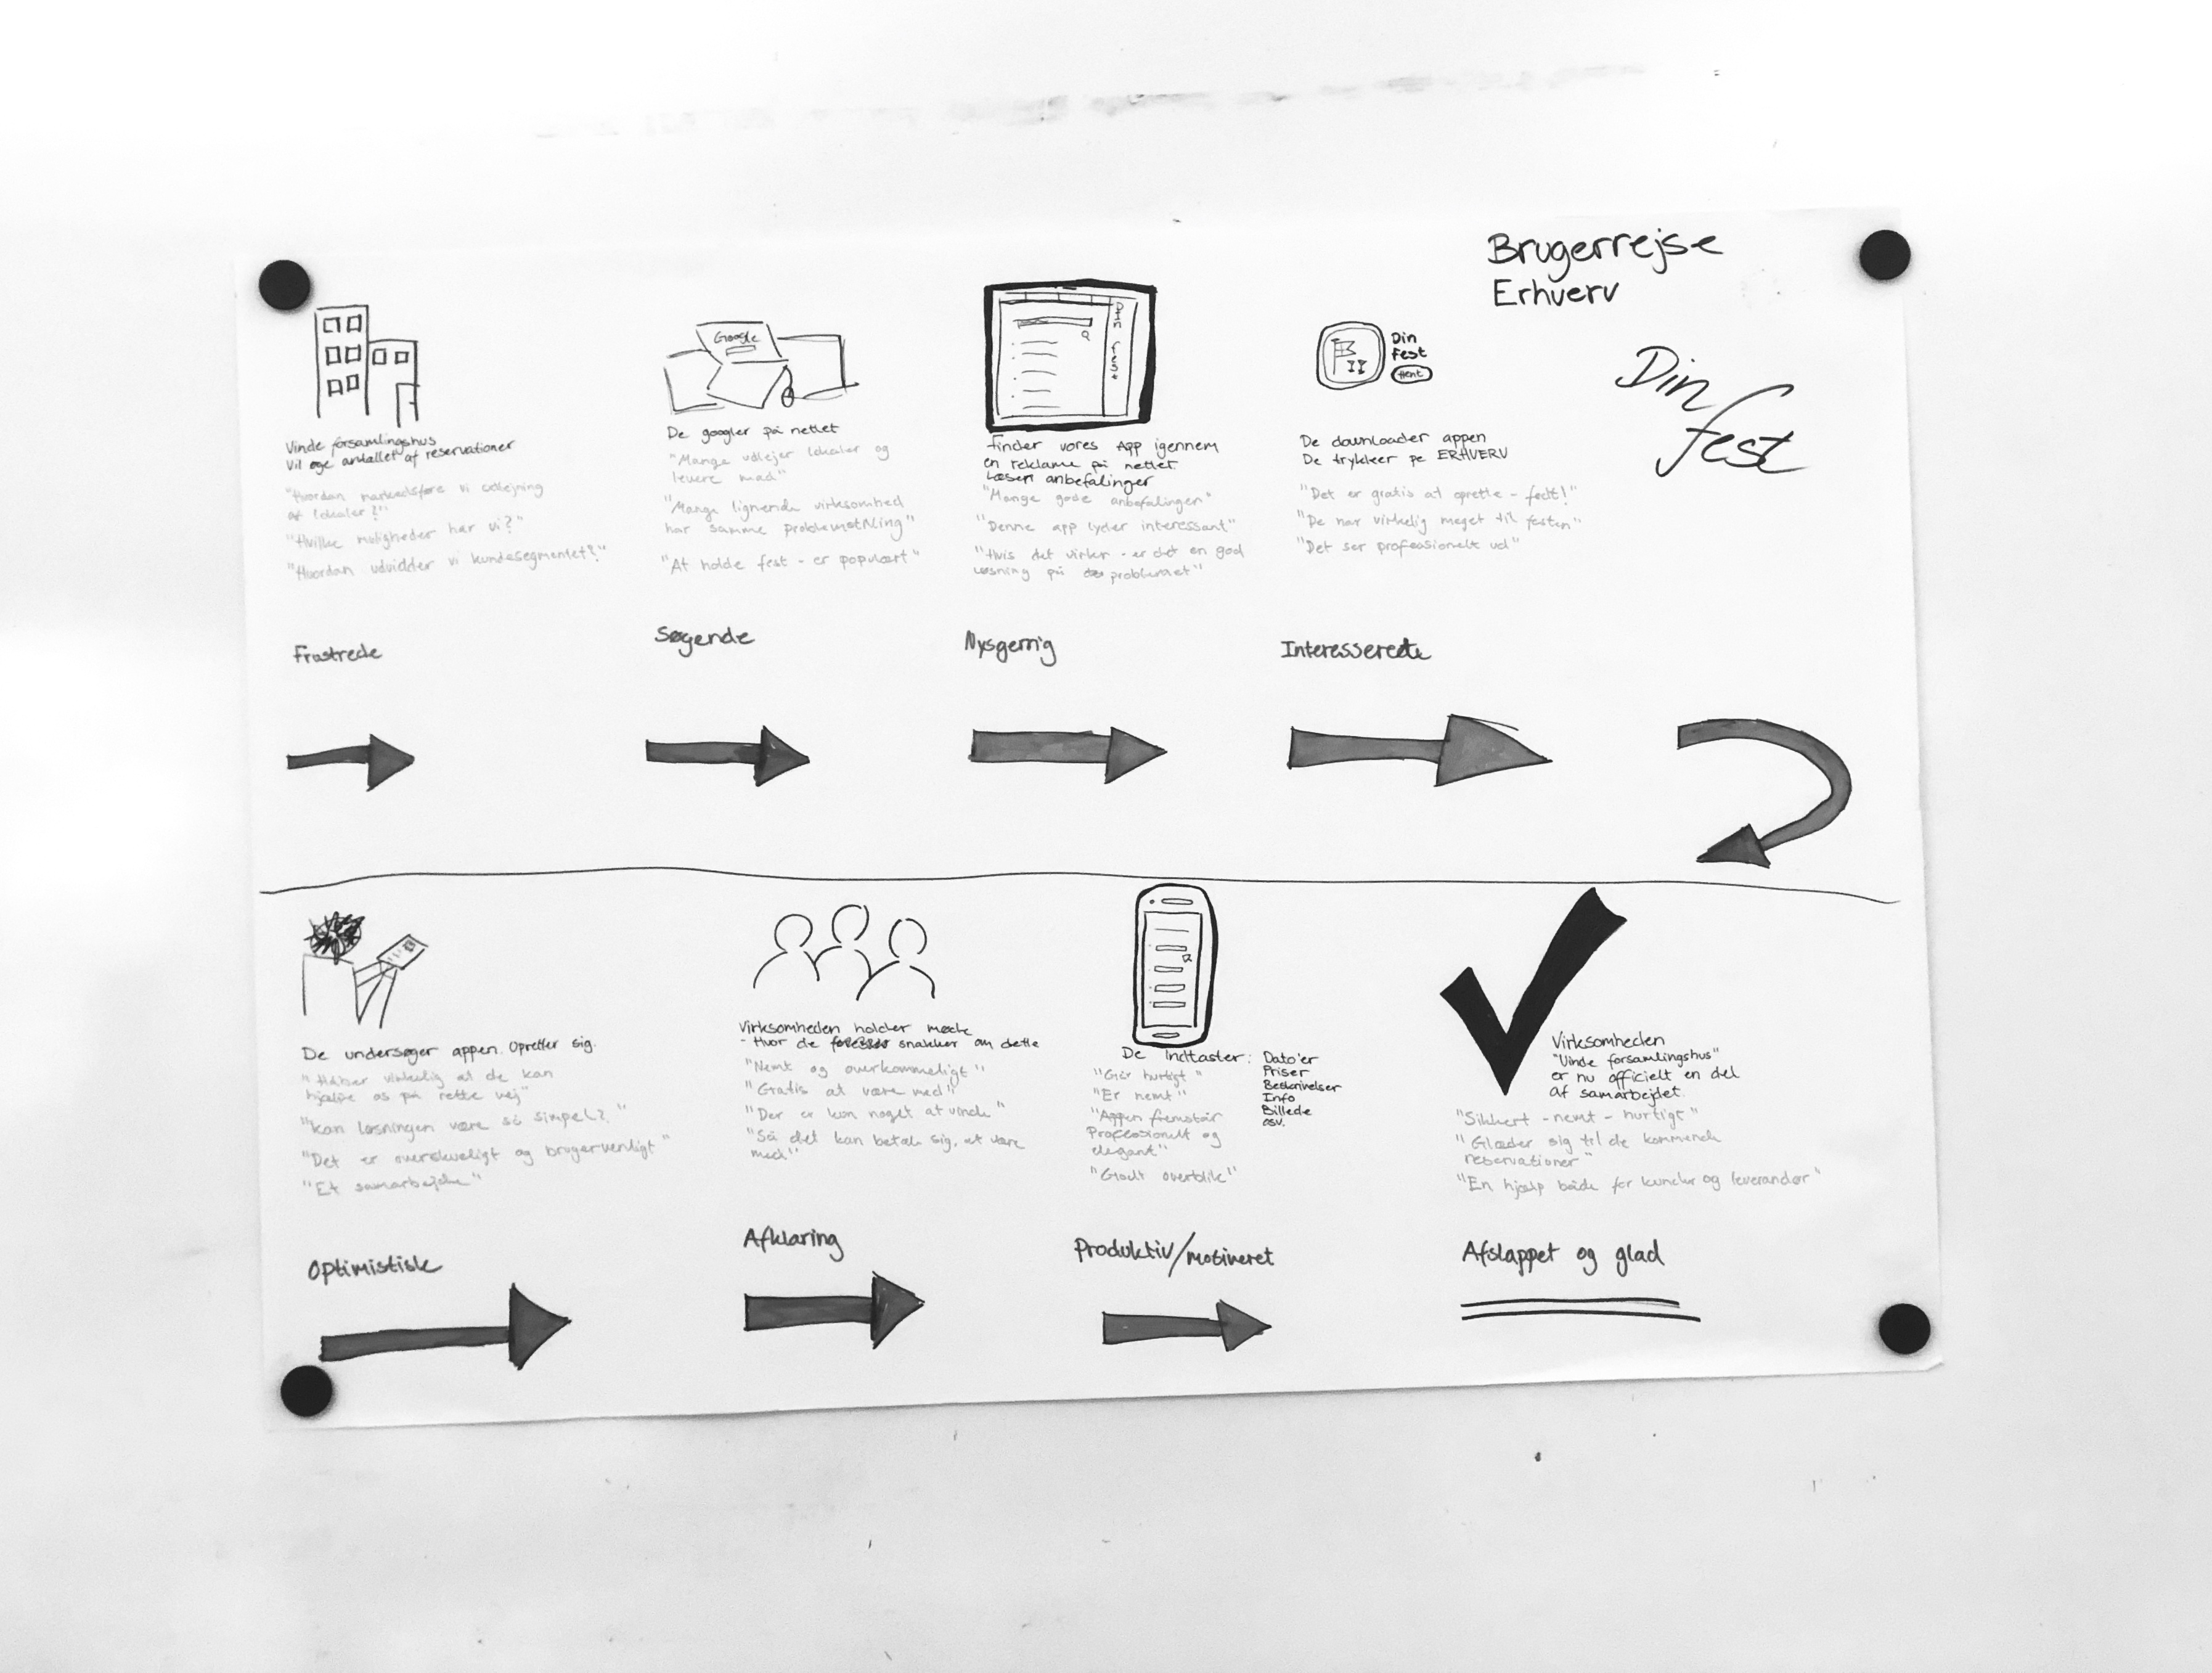 Brugerrejse
Erhverv
Din
fest
Vinde forsamlingshus
Vil øge antallet af reservationer
"Hvordan markedsføre vi udlejning
af lokaler?"
"Hvilke muligheder har vi?"
"Hvordan udvidder vi kundesegmentet?"
Frustrede
Google
De googler på nettet
"Mange udlejer lokaler og
levere mad"
"Mange lignende virksomhed
har samme problemstilling"
"At holde fest - er populært"
Søgende
Din fest
Finder vores App igennem
en reklame på nettet
Læser anbefalinger
"Mange gode anbefalinger"
"Denne app lyder interessant"
"Hvis det virker - er det en god
løsning på problemet"
Nysgerrig
Din
Fest
Hent
De downloader appen
De trykker på ERHVERV
"Det er gratis at oprette - fedt!"
"De har virkelig meget til festen"
"Det ser professionelt ud"
Interesserede
De undersøger appen. Opretter sig.
"Håber virkelig at de kan
hjælpe os på rette vej"
"Kan løsningen være så simpel?"
"Det er overskueligt og brugervenligt"
"Et samarbejde"
Optimistisk
Virksomheden holder møde
- Hvor de snakker om dette
"Nemt og overkommeligt"
"Gratis at være med"
"Der er kun noget at vinde"
"Så det kan betale sig, at være
med"
Afklaring
De Indtaster:
Dato'er
Priser
Beskrivelser
Info
Billede
osv.
"Går hurtigt"
"Er nemt"
"Appen fremstår
Professionelt og
elegant"
"Godt overblik"
Produktiv/motiveret
Virksomheden
"Vinde forsamlingshus"
er nu officielt en del
af samarbejdet.
"Sikkert - nemt - hurtigt"
"Glæder sig til de kommende
reservationer"
"En hjælp både for kunder og leverandør"
Afslappet og glad